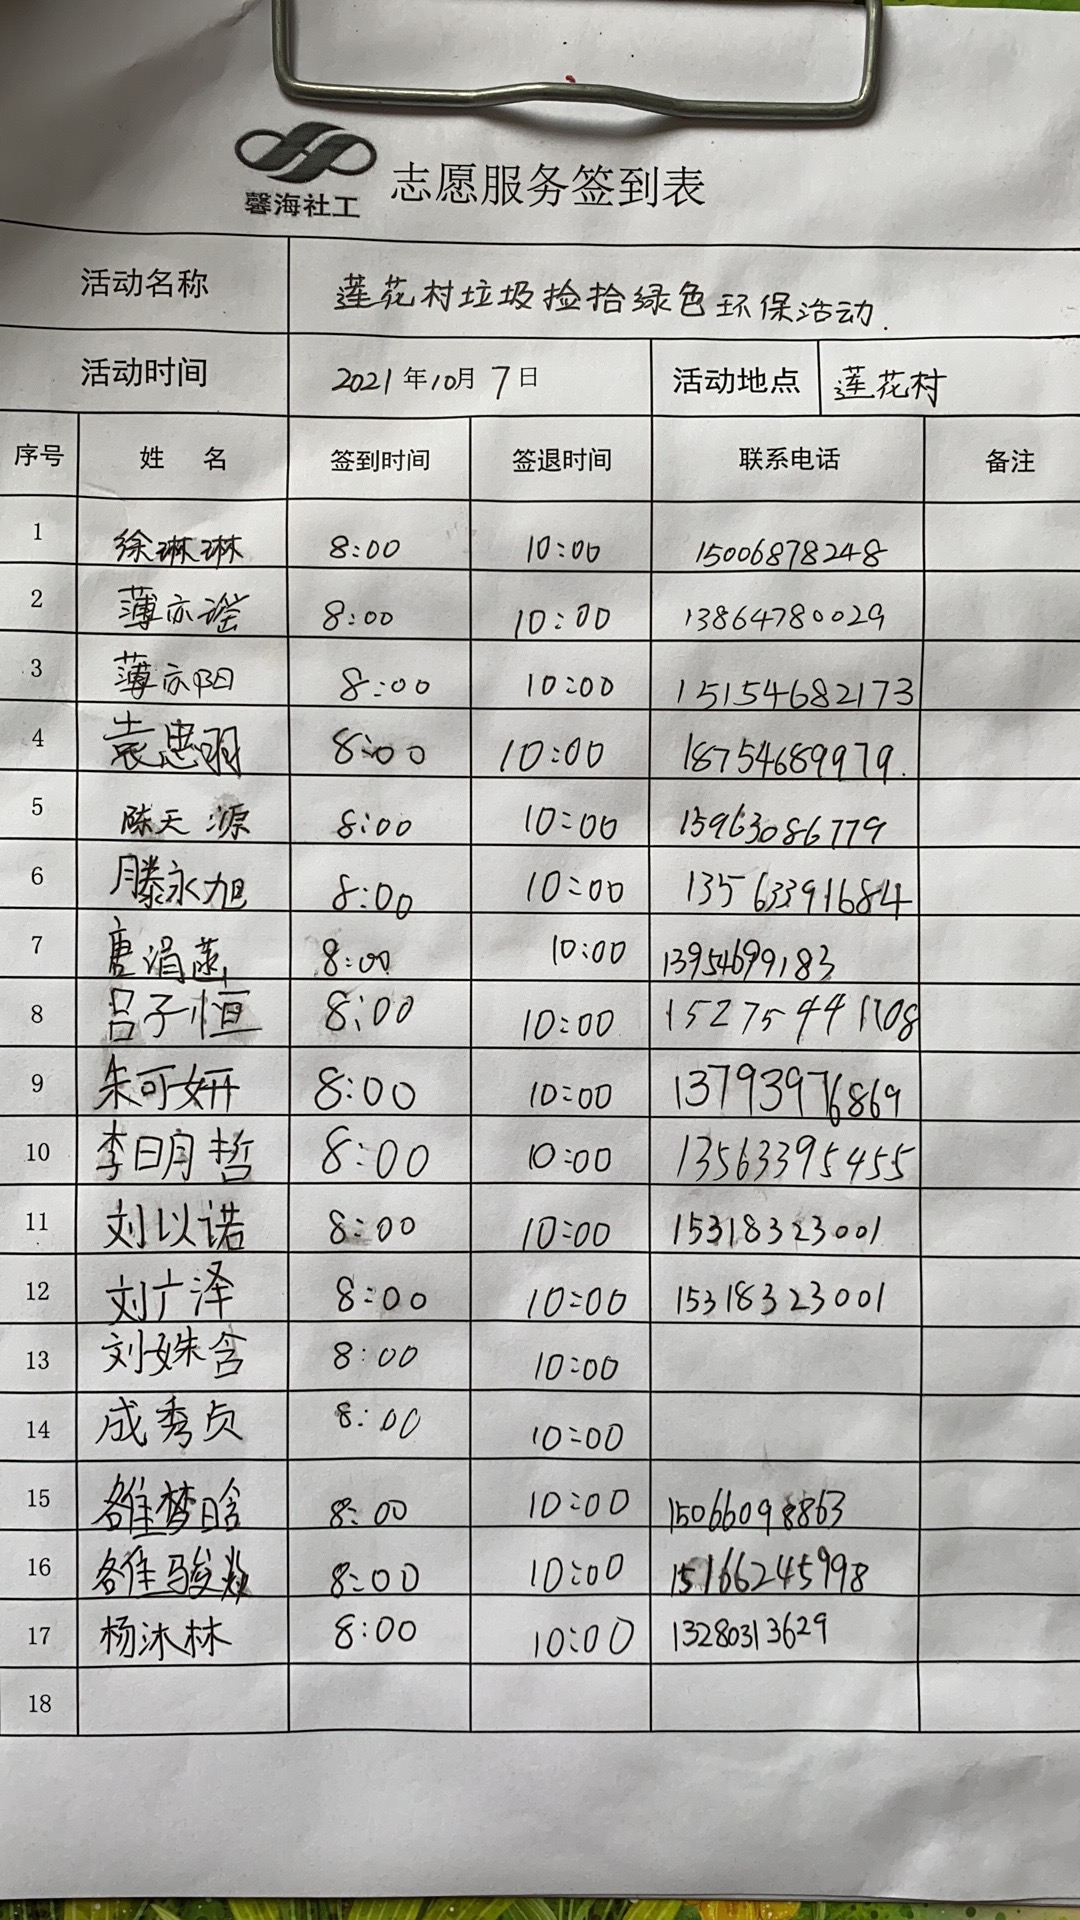 馨海社工
志愿服务签到表
活动名称 莲花村垃圾捡拾绿色环保活动.
活动时间 2021年10月7日 活动地点 莲花村
序号 姓名 签到时间 签退时间 联系电话 备注
1 徐琳琳 8:00 10:00 15006878248
2 薄亦谣 8:00 10:00 13864780029
3 薄亦阳 8:00 10:00 15154682173
4 袁忠羽 8:00 10:00 18754689979.
5 陈天源 8:00 10:00 15963086779
6 滕永旭 8:00 10:00 13563391684
7 唐涓菡 8:00 10:00 13954699183
8 吕子恒 8:00 10:00 15275441108
9 朱可妍 8:00 10:00 13793976869
10 李明哲 8:00 10:00 13563395455
11 刘以诺 8:00 10:00 15318323001
12 刘广泽 8:00 10:00 15318323001
13 刘姝含 8:00 10:00
14 成秀贞 8:00 10:00
15 雒梦晗 8:00 10:00 15066098863
16 雒骏 8:00 10:00 15166245998
17 杨沐林 8:00 10:00 13280313629
18